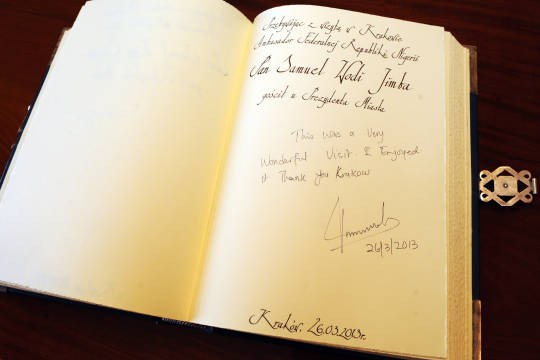 Przebywając z wizytą w Krakowie
Ambasador Federalnej Republiki Nigerii
Pan Samuel Wodi Jimba
gościł u Prezydenta Miasta
This was a very
Wonderful Visit. I Enjoyed
it Thank you Krakow
26/3/2013
Kraków, 26.03.2013r.